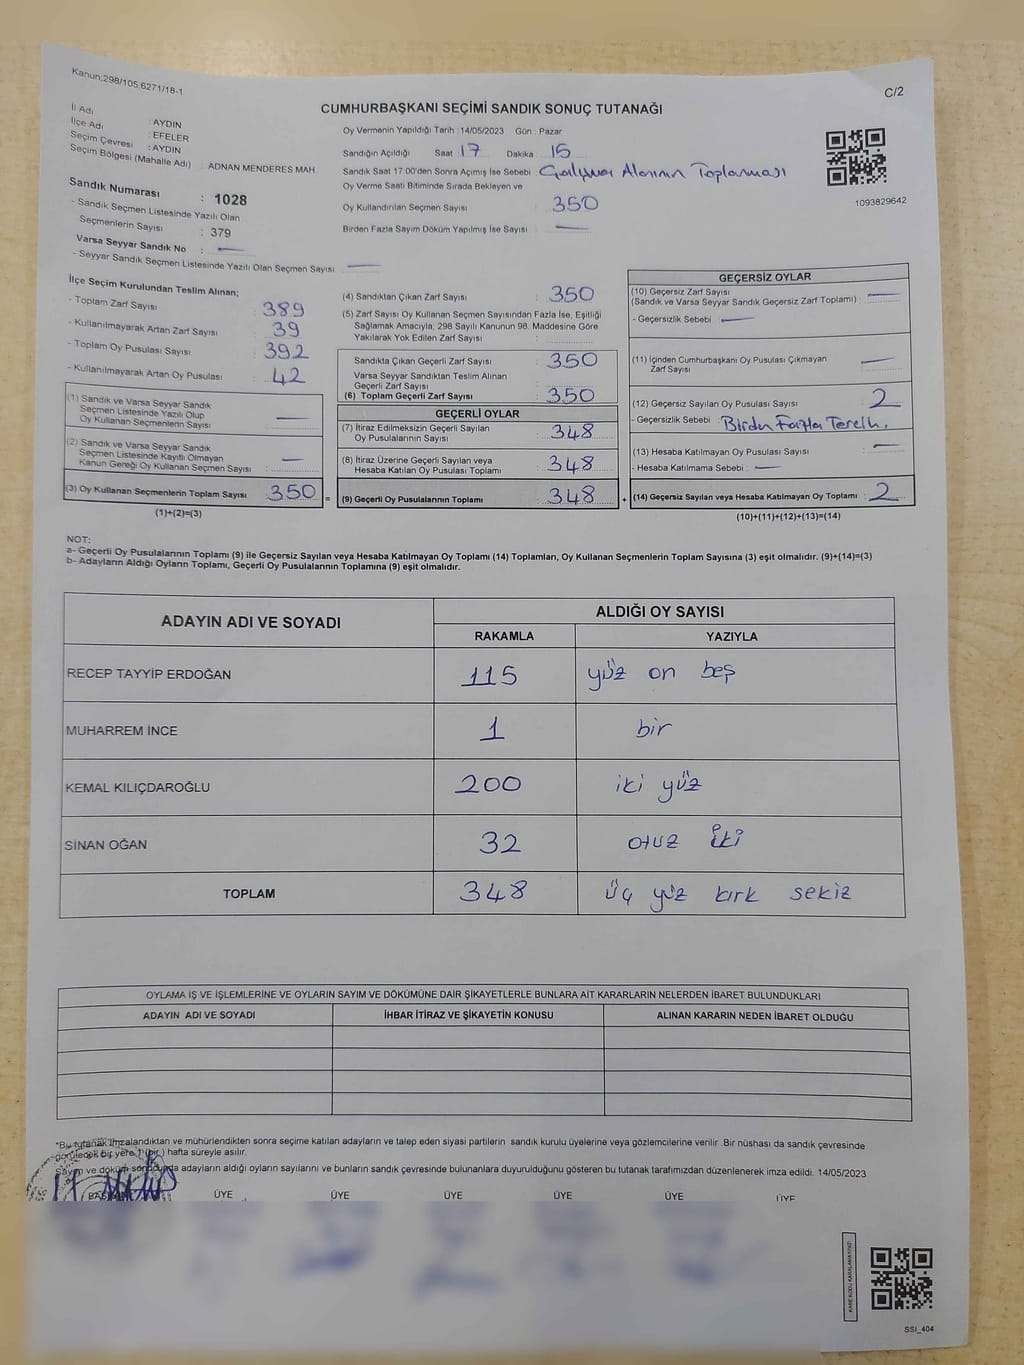 Kanun;298/105,6271/18-1
C/2
CUMHURBAŞKANI SEÇİMİ SANDIK SONUÇ TUTANAĞI
İl Adı : AYDIN
İlçe Adı : EFELER
Seçim Çevresi : AYDIN
Seçim Bölgesi (Mahalle Adı) : ADNAN MENDERES MAH
Sandık Numarası : 1028
- Sandık Seçmen Listesinde Yazılı Olan
Seçmenlerin Sayısı : 379
Varsa Seyyar Sandık No :
- Seyyar Sandık Seçmen Listesinde Yazılı Olan Seçmen Sayısı
Oy Vermenin Yapıldığı Tarih : 14/05/2023 Gün : Pazar
Sandığın Açıldığı Saat 17 Dakika : 15
Sandık Saat 17:00'den Sonra Açımış İse Sebebi : Çalışma Alanının Toplanması
Oy Verme Saati Bitiminde Sırada Bekleyen ve
Oy Kullandırılan Seçmen Sayısı : 350
Birden Fazla Sayım Döküm Yapılmış İse Sayısı :
1093829642
İlçe Seçim Kurulundan Teslim Alınan;
- Toplam Zarf Sayısı : 389
- Kullanılmayarak Artan Zarf Sayısı : 39
- Toplam Oy Pusulası Sayısı : 392
- Kullanılmayarak Artan Oy Pusulası : 42
(1) Sandık ve Varsa Seyyar Sandık
Seçmen Listesinde Yazılı Olup
Oy Kullanan Seçmenlerin Sayısı :
(2) Sandık ve Varsa Seyyar Sandık
Seçmen Listesinde Kayıtlı Olmayan
Kanun Gereği Oy Kullanan Seçmen Sayısı :
(3) Oy Kullanan Seçmenlerin Toplam Sayısı : 350
(1)+(2)=(3)
(4) Sandıktan Çıkan Zarf Sayısı : 350
(5) Zarf Sayısı Oy Kullanan Seçmen Sayısından Fazla İse, Eşitliği
Sağlamak Amacıyla; 298 Sayılı Kanunun 98. Maddesine Göre
Yakılarak Yok Edilen Zarf Sayısı :
Sandıkta Çıkan Geçerli Zarf Sayısı : 350
Varsa Seyyar Sandıktan Teslim Alınan
Geçerli Zarf Sayısı :
(6) Toplam Geçerli Zarf Sayısı : 350
GEÇERLİ OYLAR
(7) İtiraz Edilmeksizin Geçerli Sayılan
Oy Pusulalarının Sayısı : 348
(8) İtiraz Üzerine Geçerli Sayılan veya
Hesaba Katılan Oy Pusulası Toplamı : 348
= (9) Geçerli Oy Pusulalarının Toplamı : 348
GEÇERSİZ OYLAR
(10) Geçersiz Zarf Sayısı :
(Sandık ve Varsa Seyyar Sandık Geçersiz Zarf Toplamı)
- Geçersizlik Sebebi :
(11) İçinden Cumhurbaşkanı Oy Pusulası Çıkmayan
Zarf Sayısı :
(12) Geçersiz Sayılan Oy Pusulası Sayısı : 2
- Geçersizlik Sebebi : Birden Fazla Tercih.
(13) Hesaba Katılmayan Oy Pusulası Sayısı :
- Hesaba Katılmama Sebebi :
+ (14) Geçersiz Sayılan veya Hesaba Katılmayan Oy Toplamı : 2
(10)+(11)+(12)+(13)=(14)
NOT:
a- Geçerli Oy Pusulalarının Toplamı (9) ile Geçersiz Sayılan veya Hesaba Katılmayan Oy Toplamı (14) Toplamları, Oy Kullanan Seçmenlerin Toplam Sayısına (3) eşit olmalıdır. (9)+(14)=(3)
b- Adayların Aldığı Oyların Toplamı, Geçerli Oy Pusulalarının Toplamına (9) eşit olmalıdır.
ADAYIN ADI VE SOYADI ALDIĞI OY SAYISI
RAKAMLA YAZIYLA
RECEP TAYYİP ERDOĞAN 115 yüz on beş
MUHARREM İNCE 1 bir
KEMAL KILIÇDAROĞLU 200 iki yüz
SİNAN OĞAN 32 otuz iki
TOPLAM 348 üç yüz kırk sekiz
OYLAMA İŞ VE İŞLEMLERİNE VE OYLARIN SAYIM VE DÖKÜMÜNE DAİR ŞİKAYETLERLE BUNLARA AİT KARARLARIN NELERDEN İBARET BULUNDUKLARI
ADAYIN ADI VE SOYADI İHBAR İTİRAZ VE ŞİKAYETİN KONUSU ALINAN KARARIN NEDEN İBARET OLDUĞU
*Bu tutanak imzalandıktan ve mühürlendikten sonra seçime katılan adayların ve talep eden siyasi partilerin sandık kurulu üyelerine veya gözlemcilerine verilir .Bir nüshası da sandık çevresinde
görülecek bir yere 1 (bir ) hafta süreyle asılır.
Sayım ve döküm sonucunda adayların aldığı oyların sayılarını ve bunların sandık çevresinde bulunanlara duyurulduğunu gösteren bu tutanak tarafımızdan düzenlenerek imza edildi. 14/05/2023
ÜYE ÜYE ÜYE ÜYE ÜYE ÜYE
SSI_404